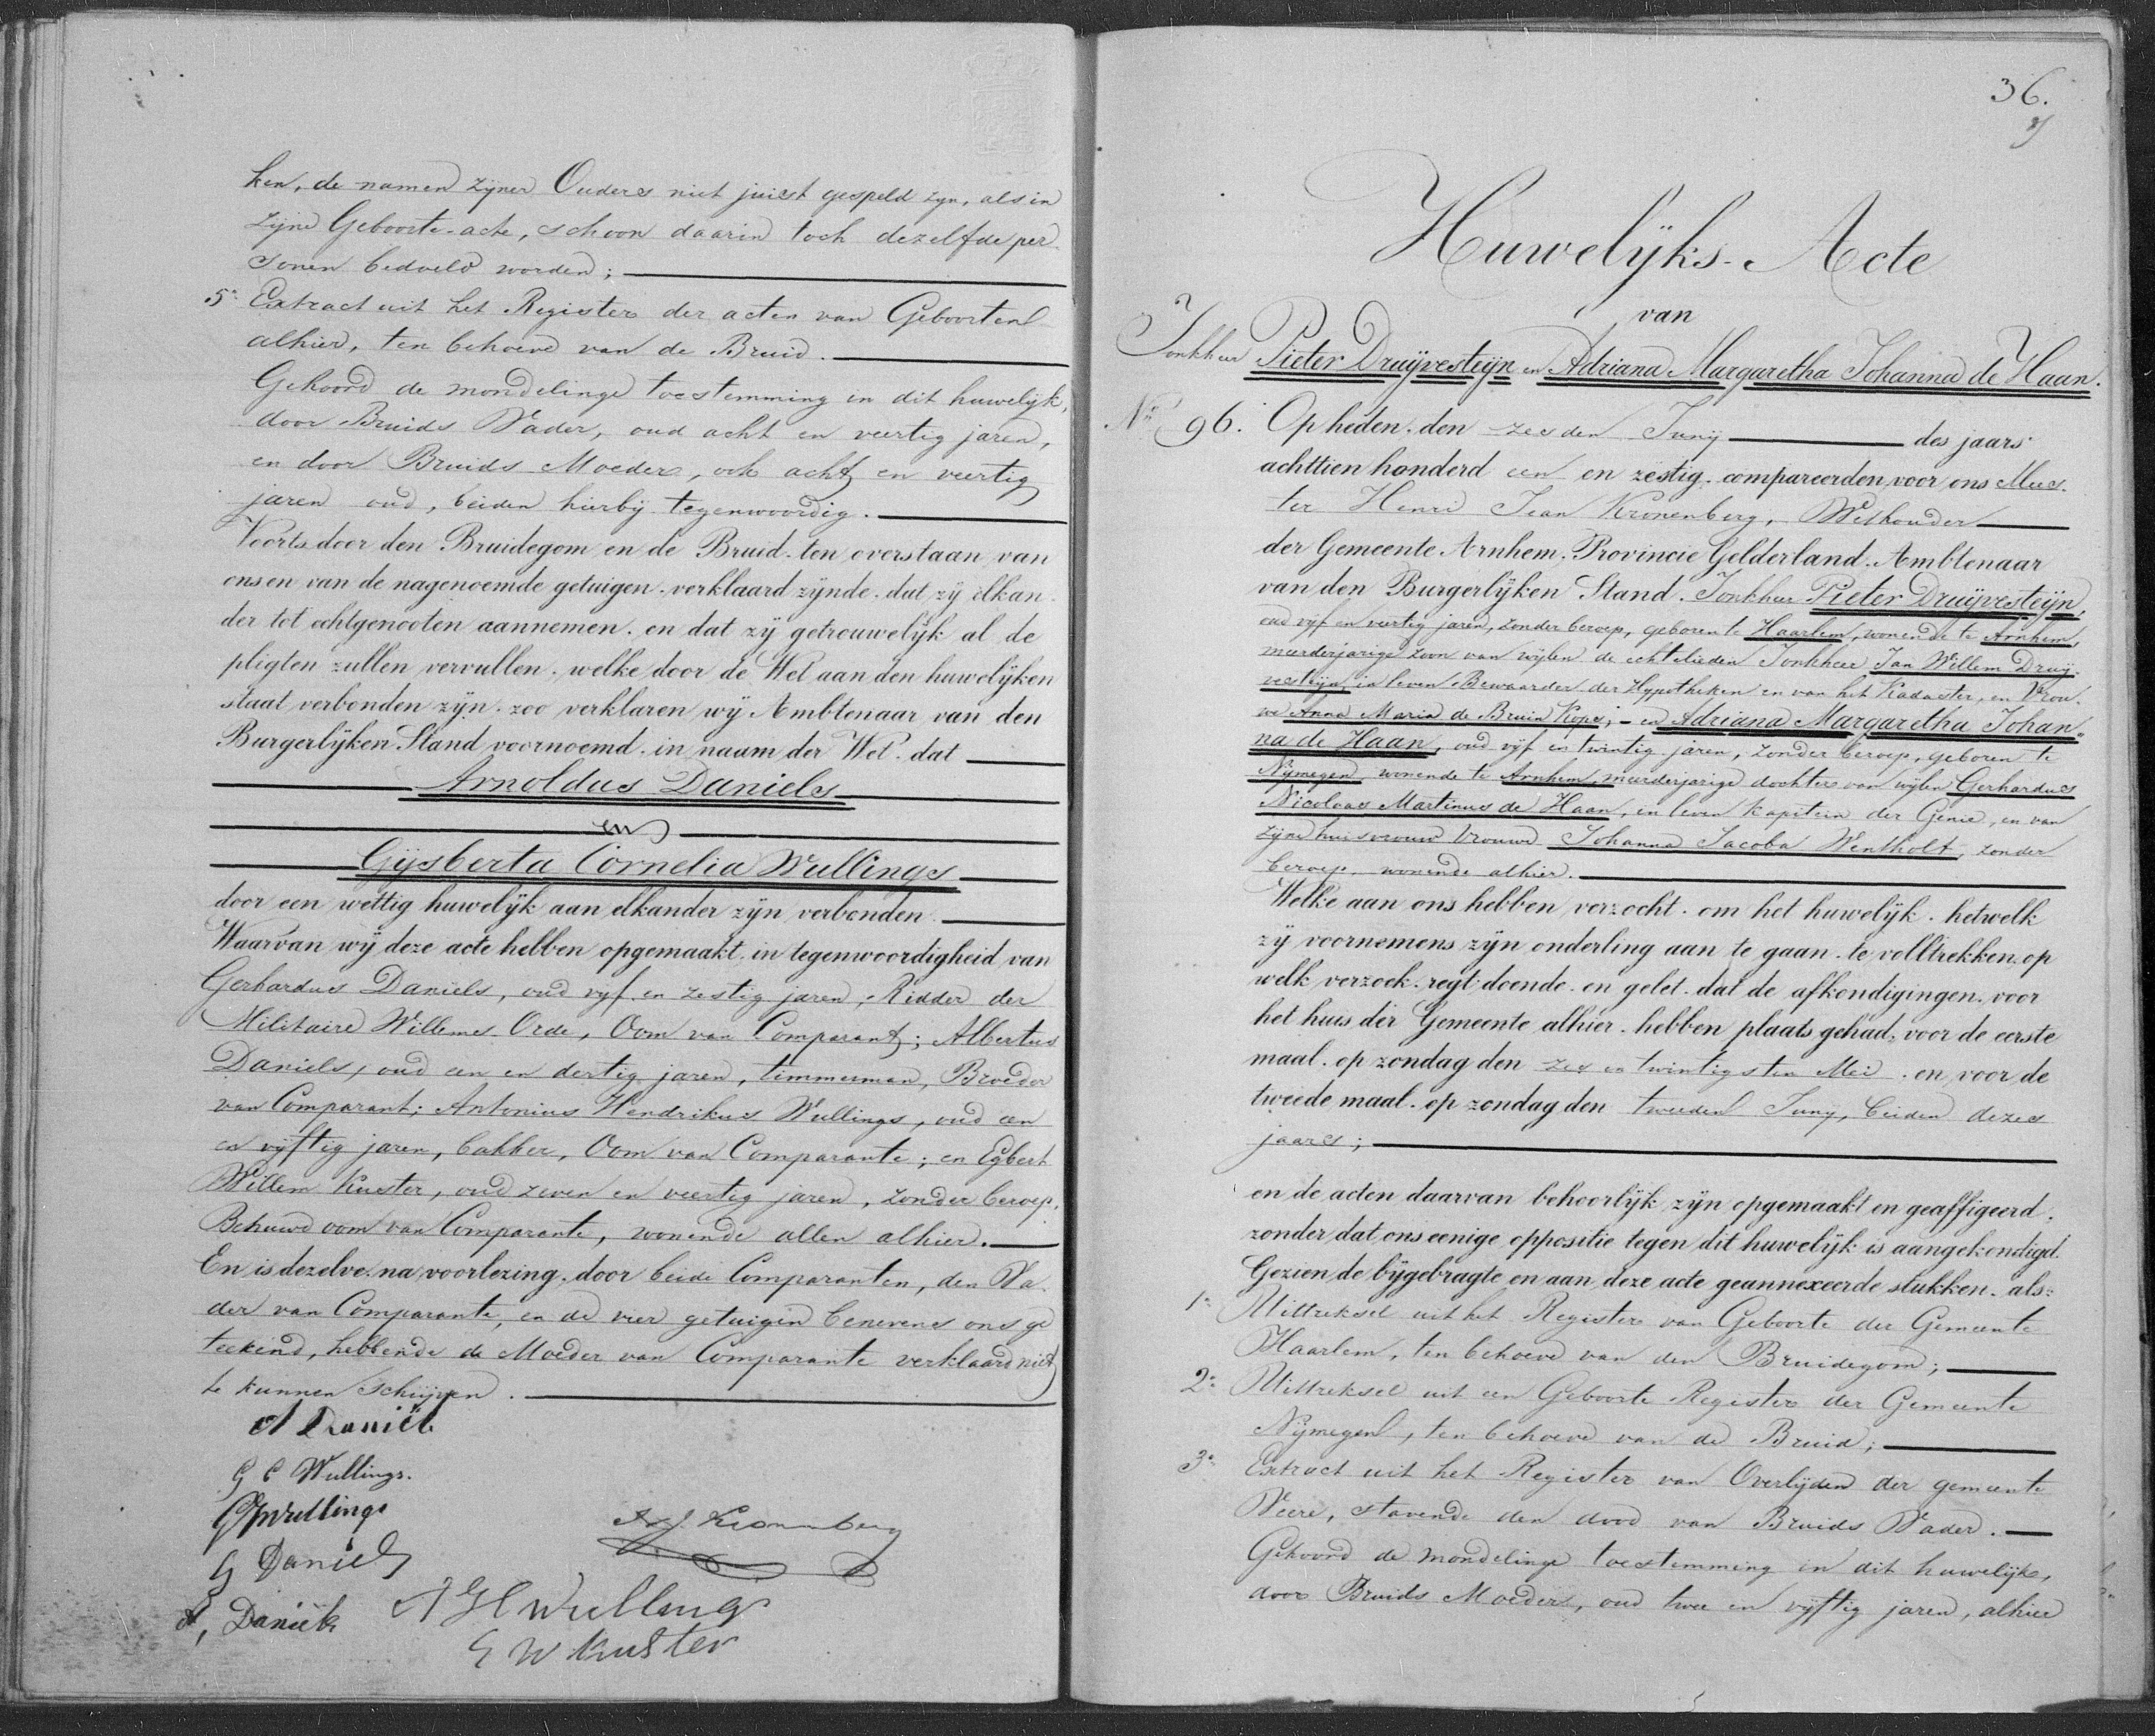 ken, de namen zijner Ouders niet juist gespeld zyn, als in
zijne Geboorte-acte, schoon daarin toch dezelfde per
sonen bedoeld worden;
5o Extract uit het Register der acten van Geboorten
alhier, ten behoeve van de Bruid.
Gehoord de mondelinge toestemming in dit huwelijk,
door Bruids Vader, oud acht en veertig jaren,
en door Bruids Moeder, ook acht en veertig
jaren oud, beiden hierbij tegenwoordig.
Voorts door den Bruidegom en de Bruid. ten overstaan van
ons en van de nagenoemde getuigen. verklaard zynde. dat zy elkan
der tot echtgenooten aannemen. en dat zy getrouwelyk al de
pligten zullen vervullen. welke door de Wet aan den huwelyken
staat verbonden zyn. zoo verklaren wy Ambtenaar van den
Burgerlyken Stand voornoemd. in naam der Wet. dat
Arnoldus Daniels
en
Gijsberta Cornelia Wullings
door een wettig huwelyk aan elkander zyn verbonden.
Waarvan wy deze acte hebben opgemaakt. in tegenwoordigheid van
Gerhardus Daniels, oud vyf en zestig jaren, Ridder der
Militaire Willems-Orde, Oom van Comparant; Albertus
Daniels, oud een en dertig jaren, timmerman, Broeder
van Comparant; Antonius Hendrikus Wullings, oud een
en vyftig jaren, bakker, Oom van Comparante; en Egbert
Willem Kuster, oud zeven en veertig jaren, zonder beroep,
Behuwd oom van Comparante, wonende allen alhier.
En is dezelve. na voorlezing. door beide Comparanten, den Va
der van Comparante, en de vier getuigen benevens ons ge
teekend, hebbende de Moeder van Comparante verklaard niet
te kunnen schrijven.
A Daniëls
G C Wullings.
Wullings
G Daniels
A, Daniëls
Kronenberg
A H Wullings
E W Kuster
36.
Huwelyks-Acte
van
Jonkheer Pieter Druijvesteijn en Adriana Margaretha Johanna de Haan.
No 96. Op heden. den zesden Junij des jaars
achttien honderd een en zestig. compareerden voor ons Mees
ter Henri Jean Kronenberg, Wethouder
der Gemeente Arnhem. Provincie Gelderland. Ambtenaar
van den Burgerlyken Stand. Jonkheer Pieter Druijvesteijn,
oud vijf en veertig jaren, zonder beroep, geboren te Haarlem, wonende te Arnhem,
meerderjarige zoon van wijlen de echtelieden Jonkheer Jan Willem Druij-
vesteijn, in leven Bewaarder der Hypotheken en van het Kadaster, en Vrou-
we Anna Maria de Bruin Kops; - en Adriana Margaretha Johan"
na de Haan, oud vijf en twintig jaren, zonder beroep, geboren te
Nijmegen, wonende te Arnhem, meerderjarige dochter van wijlen Gerhardus
Nicolaas Martinus de Haan, in leven Kapitein der Genie, en van
zijne huisvrouw Vrouwe Johanna Jacoba Wentholt, zonder
beroep, wonende alhier.
Welke aan ons hebben verzocht. om het huwelyk. hetwelk
zy voornemens zyn onderling aan te gaan. te voltrekken. op
welk verzoek. regt doende. en gelet. dat de afkondigingen. voor
het huis der Gemeente alhier. hebben plaats gehad, voor de eerste
maal. op zondag den zes en twintigsten Mei. en voor de
tweede maal. op zondag den tweeden Junij, beiden dezes
jaars;
en de acten daarvan behoorlyk zyn opgemaakt en geaffigeerd.
zonder dat ons eenige oppositie tegen dit huwelyk is aangekondigd.
Gezien de bygebragte en aan deze acte geannexeerde stukken. als:
1o Uittreksel uit het Register van Geboorte der Gemeente
Haarlem, ten behoeve van den Bruidegom;
2o Uittreksel uit een Geboorte Register der Gemeente
Nijmegen, ten behoeve van de Bruid;
3o Extract uit het Register van Overlijden der gemeente
Veere, stavende den dood van Bruids Vader.
Gehoord de mondelinge toestemming in dit huwelijk,
door Bruids Moeder, oud twee en vijftig jaren, alhier